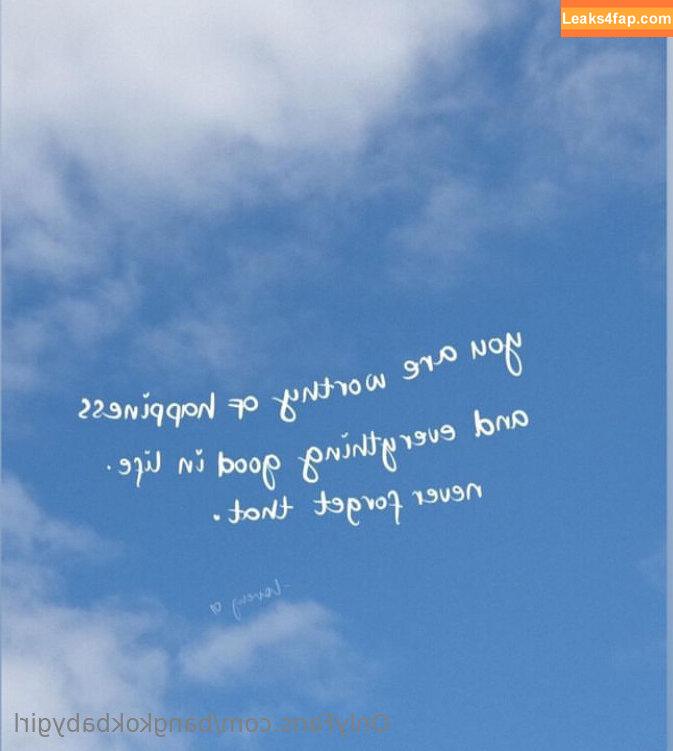 Leaks4fap.com
you are worthy of happiness
and everything good in life.
never forget that.
OnlyFans.com/bangkokbabygirl